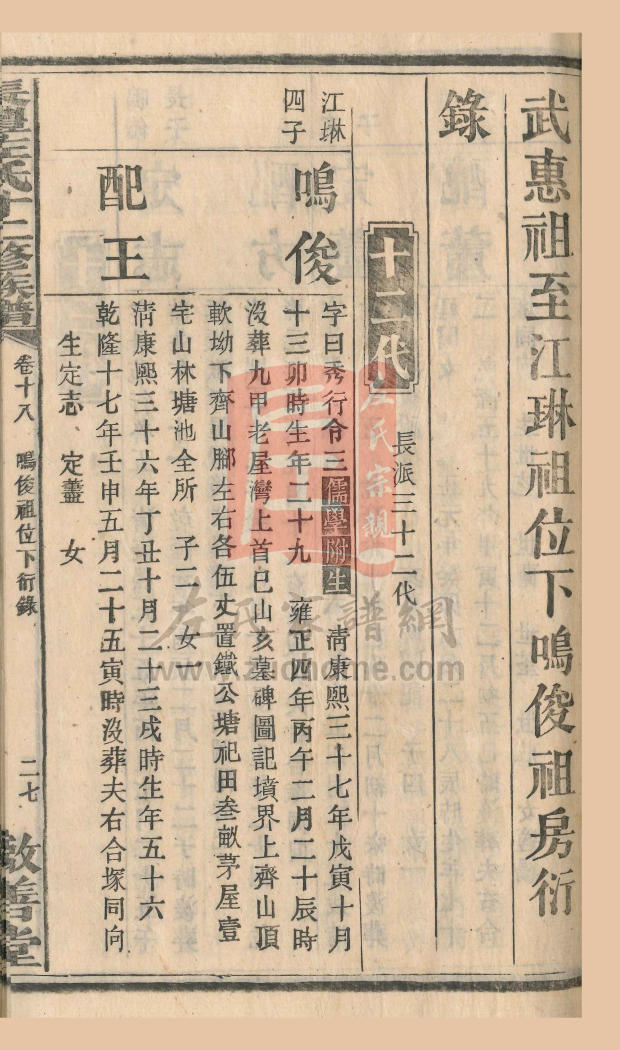 武惠祖至江琳祖位下鳴俊祖房衍
錄
十二代
長派三十二代
江琳
四子
鳴俊
字曰秀行令三儒學附生 淸康熙三十七年戊寅十月
十三卯時生年二十九 雍正四年丙午二月二十辰時
沒葬九甲老屋灣上首巳山亥墓碑圖記墳界上齊山頂
軟坳下齊山腳左右各伍丈置鐵公塘祀田叁畝茅屋壹
宅山林塘池全所 子二 女一
配王
淸康熙三十六年丁丑十月二十三戌時生年五十六
乾隆十七年壬申五月二十五寅時沒葬夫右合塚同向
生定志 定藎 女
左氏十二修族譜
卷十八
鳴俊祖位下衍錄
二七
敦善堂
左氏宗親
左氏家譜網
www.zuohome.com